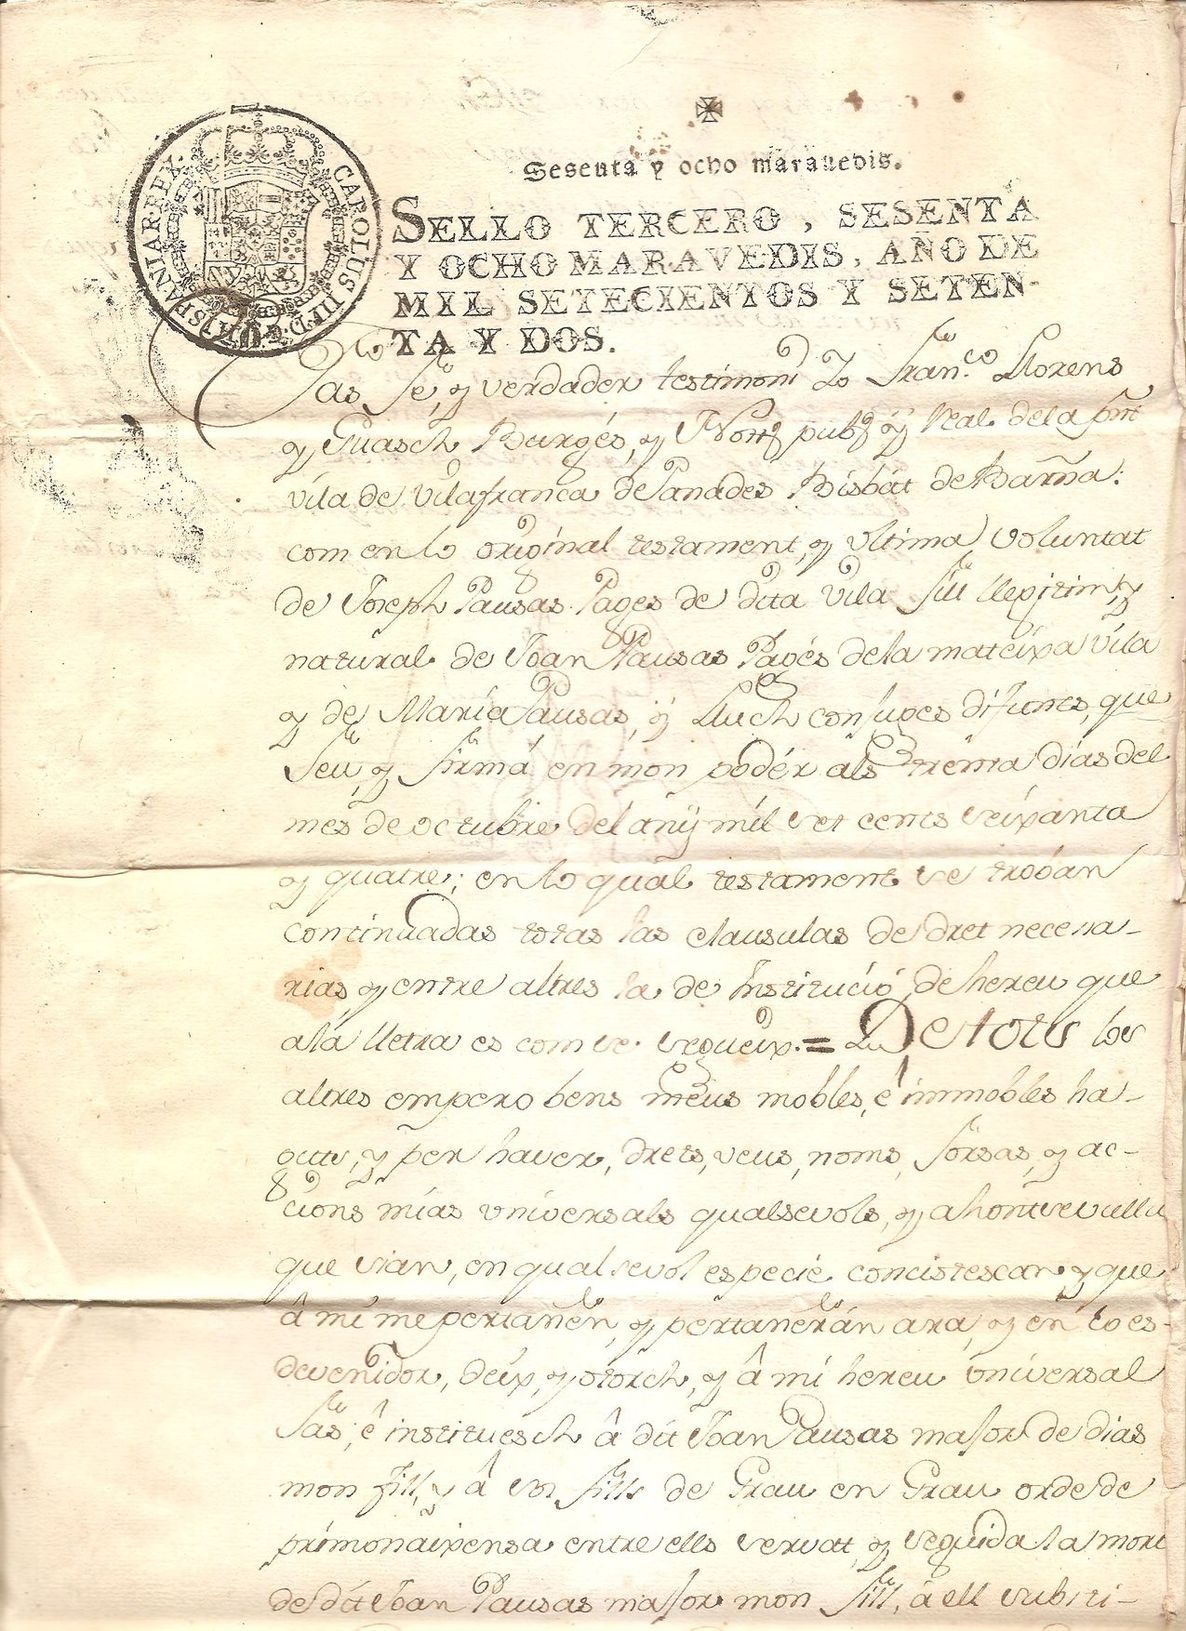 CAROLUS III. D. G. HISPANIAR. REX.
Sesenta y ocho marauedis.
SELLO TERCERO, SESENTA
Y OCHO MARAVEDIS, AÑO DE
MIL SETECIENTOS Y SETEN-
TA Y DOS.
fas fè, y verdader testimoni Jo Fran.co Llorens
y Guasch Burgés, y Nott.i pub.h y Real dela pñt
vila de Vilafranca de Panades Bisbát de Barña:
com en lo original testament, y vltima voluntat
de Joseph Pausas Pages de dita vila fill llegitim, y
natural de Joan Pausas Pagés dela mateixa vila
y de María Pausas, y Lluch conjuges difunts, que
feu, y firmá en mon podér als trenta días del
mes de octubre del añy mil set cents seixanta
y quatre; en lo qual testament se tróban
continuadas totas las clausulas de dret necessa-
rias, y entre altres la de Institució de hereu que
ala lletra es com se segueix. = De tots los
altres empero bens meus mobles, é immobles ha-
guts, y per haver, drets, veus, noms, forsas, y ac-
cions mías vniversals qualsevols, y ahontsevulla
que sian, en qualsevol especie concistescan y que
â mi me pertañen, y pertañerán ara, y en lo es-
devenidor, deix, y otorch, y â mí hereu vniversal
fas, ê instituesch â dit Joan Pausas major de dias
mon fill, y â sos fills de Grau en Grau orde de
primonaixensa entre ells servat, y seguida la mort
de dit Joan Pausas major mon fill, â ell substi-